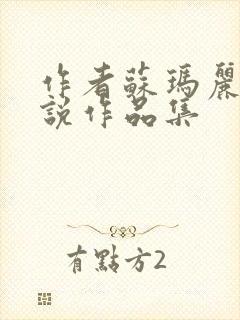 作者蘇瑪麗
說作品集
有點方2